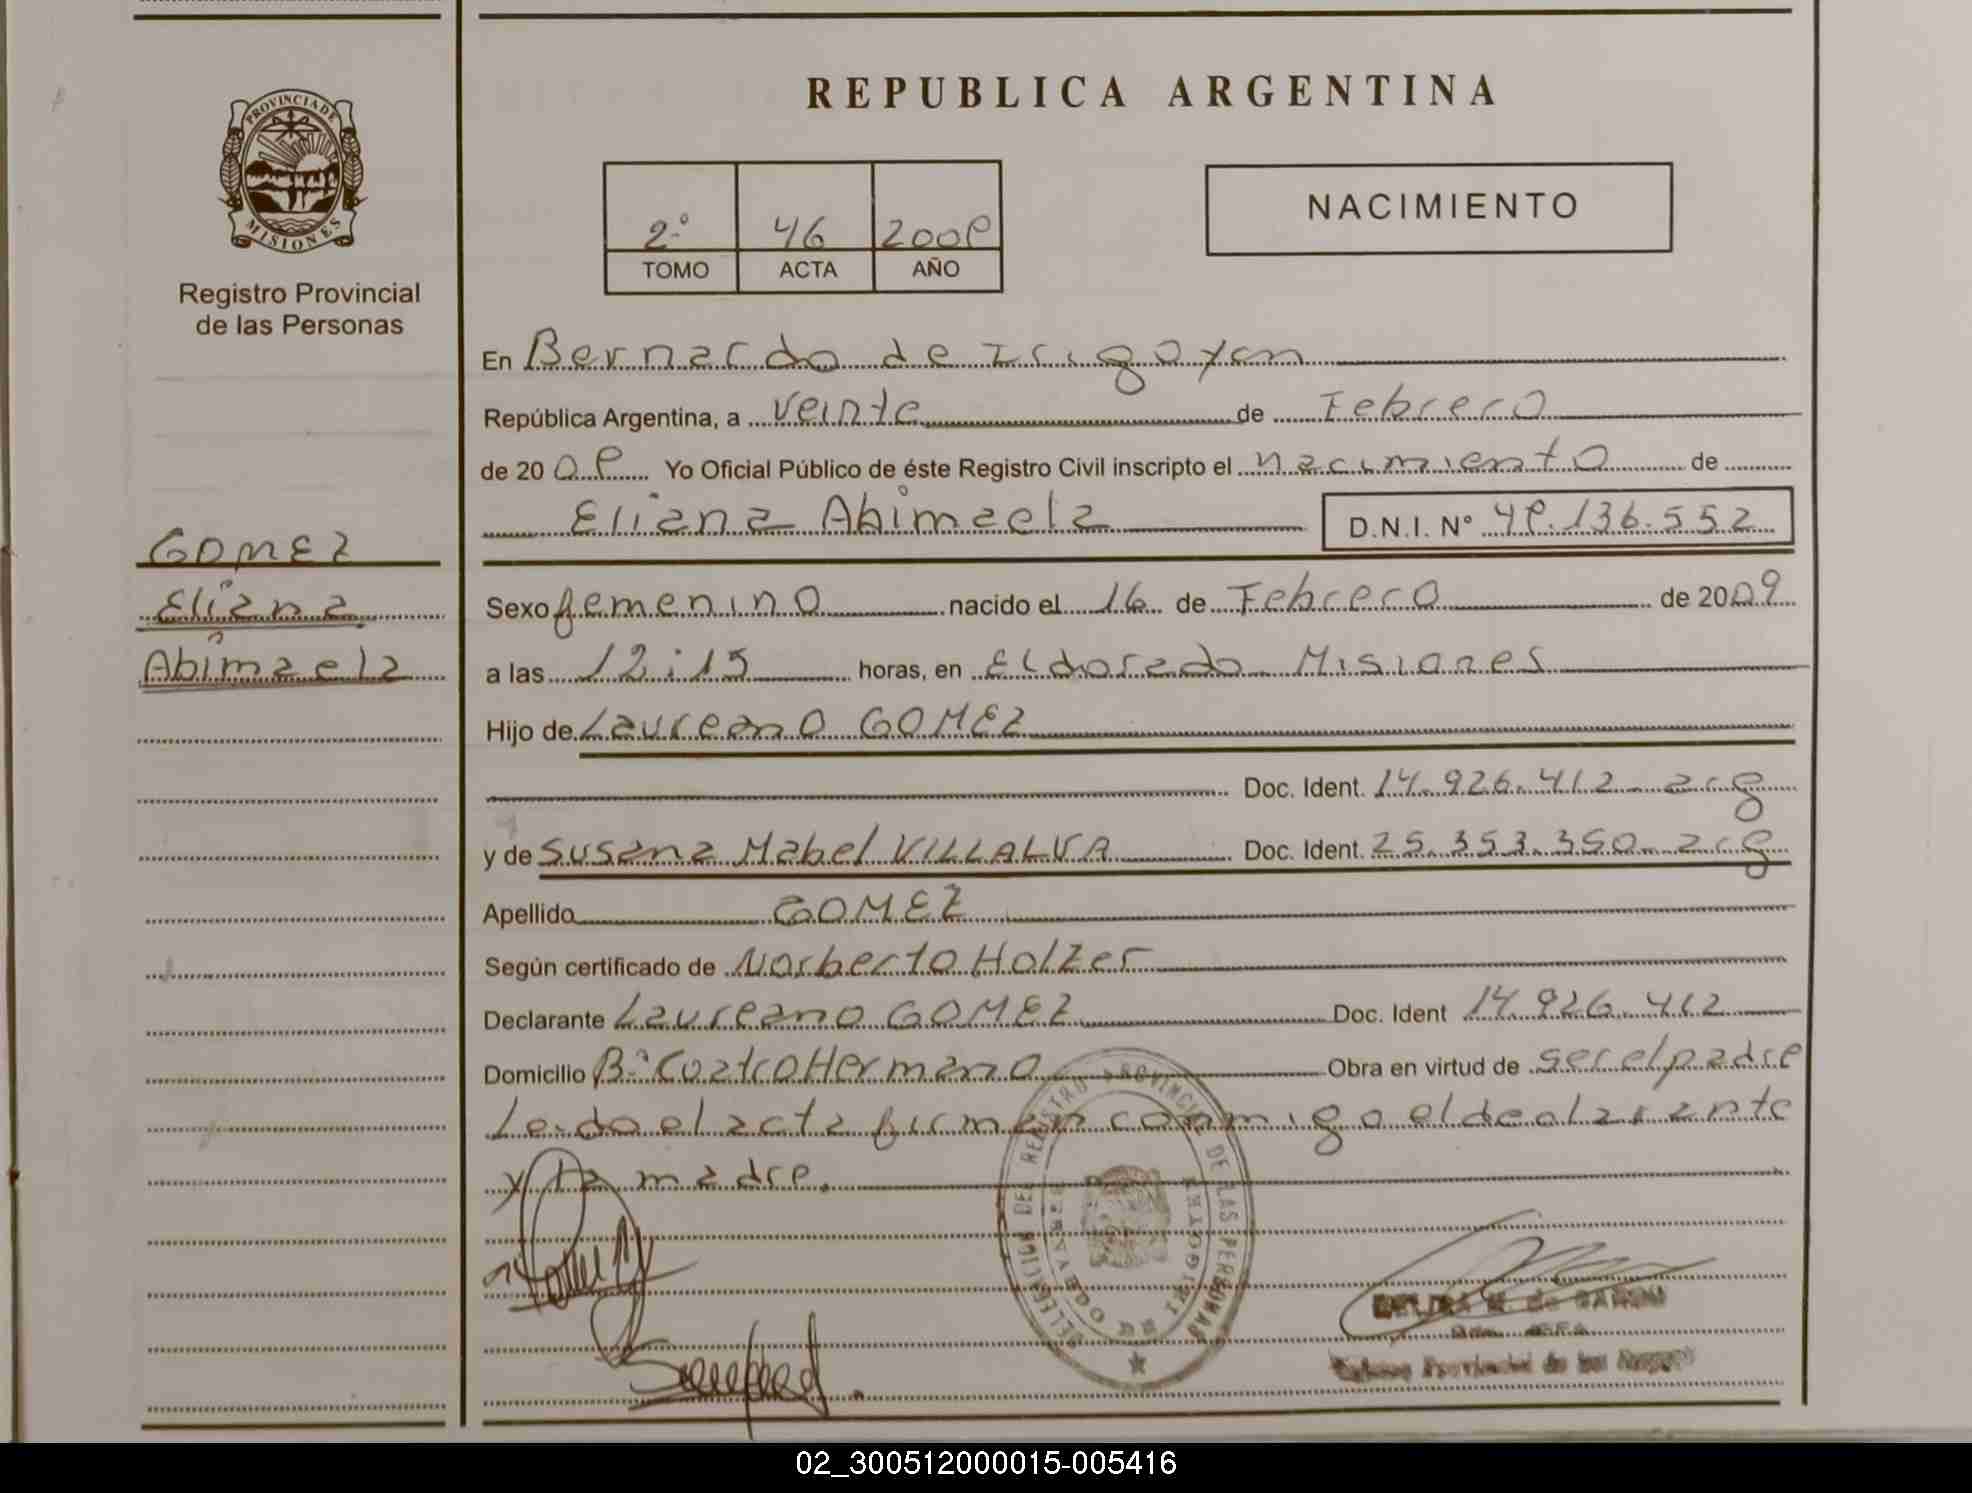 REPUBLICA ARGENTINA
PROVINCIA DE
MISIONES
Registro Provincial
de las Personas
2º 46 2009
TOMO ACTA AÑO
NACIMIENTO
En Bernardo de Irigoyen
República Argentina, a veinte de Febrero
de 2009 Yo Oficial Público de éste Registro Civil inscripto el nacimiento de
Eliana Abimaela D.N.I. Nº 49.136.552
GOMEZ
Eliana
Abimaela
Sexo femenino nacido el 16 de Febrero de 2009
a las 12:15 horas, en Eldorado Misiones
Hijo de Laureano GOMEZ
Doc. Ident. 14.926.412 arg
y de Susana Mabel VILLALVA Doc. Ident. 25.353.350 arg
Apellido GOMEZ
Según certificado de Norberto Holzer
Declarante Laureano GOMEZ Doc. Ident 14.926.412
Domicilio Bº Cuatro Hermano Obra en virtud de ser el padre
Leido el acta firman conmigo el declarante
y la madre.
DELEGACION DEL REGISTRO PROVINCIAL DE LAS PERSONAS
BERNARDO DE IRIGOYEN
02_300512000015-005416